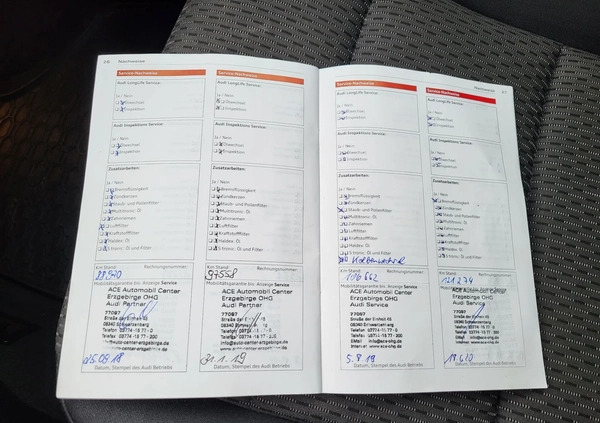 26 Nachweise
Service-Nachweise
Audi LongLife Service:
Ja / Nein
Ölwechsel
Inspektion
Audi Inspektions Service:
Ja / Nein
Ölwechsel
Inspektion
Zusatzarbeiten:
Ja / Nein
Bremsflüssigkeit
Zündkerzen
Staub- und Pollenfilter
Multitronic Öl
Zahnriemen
Luftfilter
Kraftstofffilter
Haldex Öl
S tronic: Öl und Filter
Km Stand: Rechnungsnummer:
88970
Mobilitätsgarantie bis: Anzeige Service
ACE Automobil Center
Erzgebirge OHG
Audi Partner
77097
Straße der Einheit
08340 Schwarzenberg
Telefon 03774-15 77-0
Telefax 03774-15 77-200
info@auto-center-erzgebirge.de
05.09.18
Datum, Stempel des Audi Betriebs
Service-Nachweise
Audi LongLife Service:
Ja / Nein
Ölwechsel
Inspektion
Audi Inspektions Service:
Ja / Nein
Ölwechsel
Inspektion
Zusatzarbeiten:
Ja / Nein
Bremsflüssigkeit
Zündkerzen
Staub- und Pollenfilter
Multitronic: Öl
Zahnriemen
Luftfilter
Kraftstofffilter
Haldex: Öl
S tronic: Öl und Filter
Km Stand: Rechnungsnummer:
97558
Mobilitätsgarantie bis: Anzeige Service
ACE Automobil Center
Erzgebirge OHG
Audi Partner
77097
Straße der
08340 Schwarzenberg
Telefon 03774-15 77-0
Telefax 03774-15 77-200
info@auto-center-erzgebirge.de
31.1.19
Datum, Stempel des Audi Betriebs
Service-Nachweise
Audi LongLife Service:
Ja / Nein
Ölwechsel
Inspektion
Audi Inspektions Service:
Ja / Nein
Ölwechsel
Inspektion
Zusatzarbeiten:
Ja / Nein
Bremsflüssigkeit
Zündkerzen
Staub- und Pollenfilter
Multitronic: Öl
Zahnriemen
Luftfilter
Kraftstofffilter
Haldex: Öl
S tronic: Öl und Filter
Km Stand: Rechnungsnummer:
106662
Mobilitätsgarantie bis: Anzeige Service
ACE Automobil Center
Erzgebirge OHG
Audi Service
77097
Straße der Einheit 45
08340 Schwarzenberg
Telefon 03774-15 77-0
Telefax 03774-15 77-200
EMail info@ace-ohg.de
Internet www.ace-ohg.de
5.8.19
Datum, Stempel des Audi Betriebs
Nachweise 27
Service-Nachweise
Audi LongLife Service:
Ja / Nein
Ölwechsel
Inspektion
Audi Inspektions Service:
Ja / Nein
Ölwechsel
Inspektion
Zusatzarbeiten:
Ja / Nein
Bremsflüssigkeit
Zündkerzen
Staub- und Pollenfilter
Multitronic: Öl
Zahnriemen
Luftfilter
Kraftstofffilter
Haldex: Öl
S tronic: Öl und Filter
Km Stand: Rechnungsnummer:
121274
Mobilitätsgarantie bis: Anzeige Service
ACE Automobil Center
Erzgebirge OHG
Audi Service
77097
Straße der Einheit 45
08340 Schwarzenberg
Telefon 03774-15 77-0
Telefax 03774-15 77-200
EMail info@ace-ohg.de
Internet www.ace-ohg.de
Datum, Stempel des Audi Betriebs